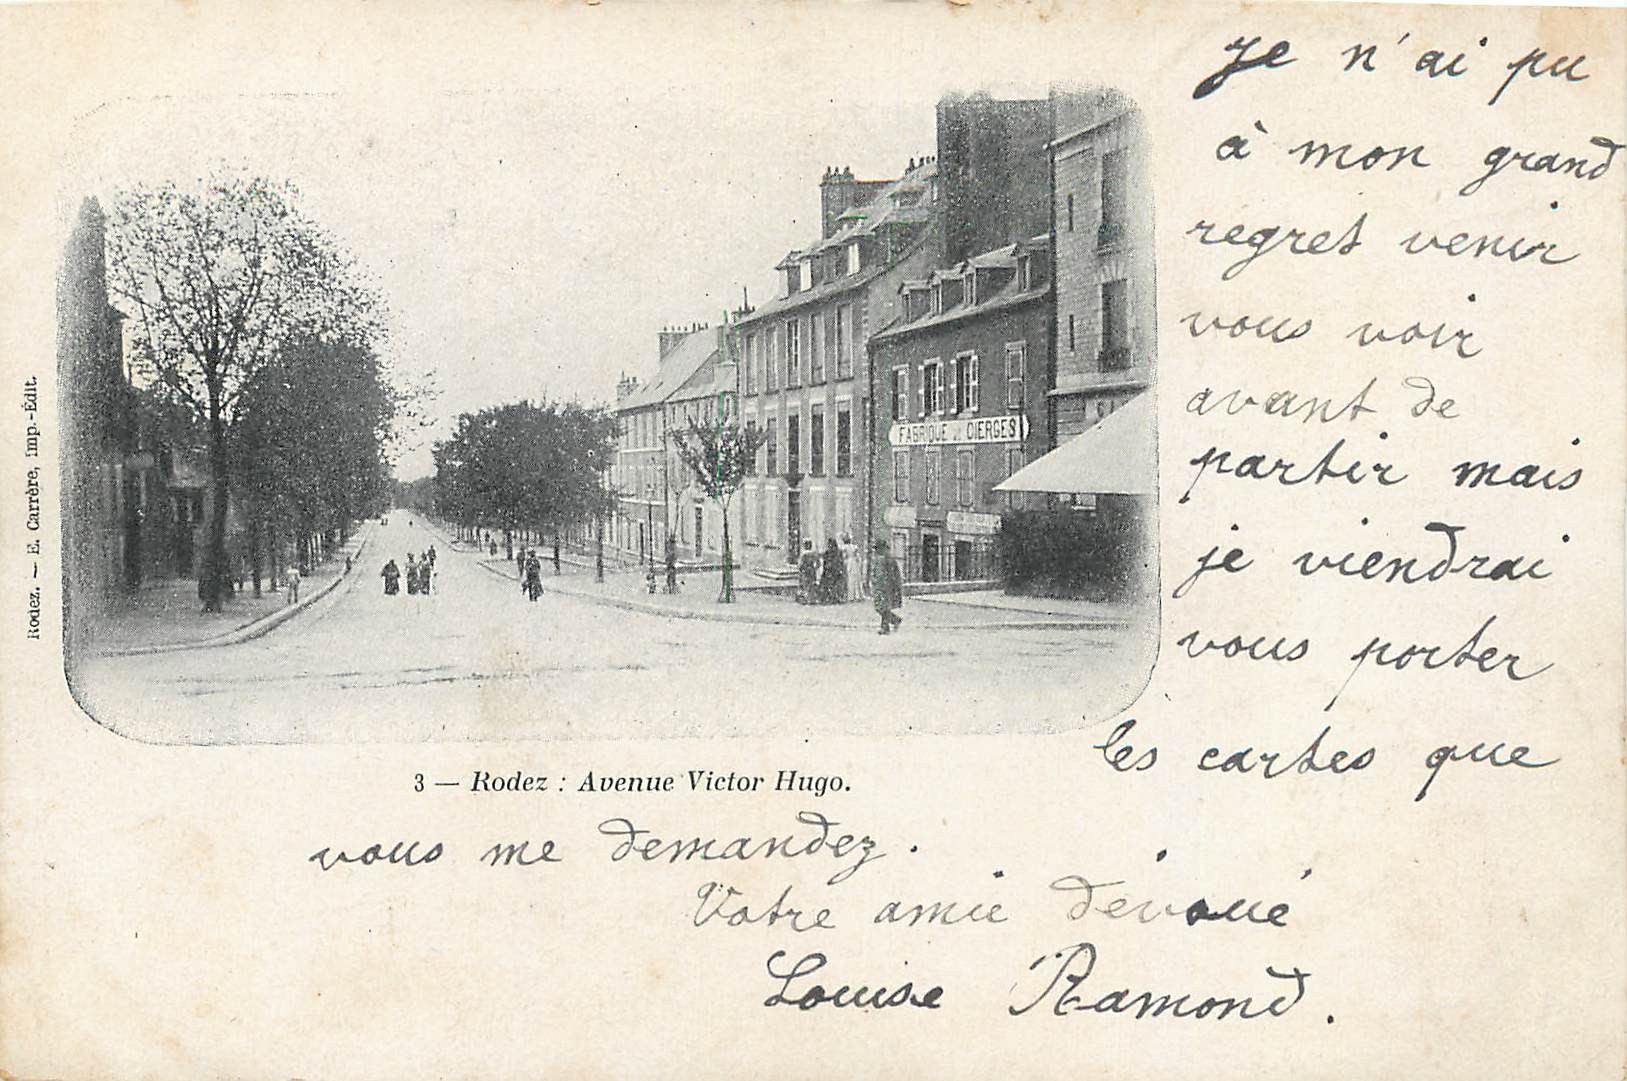 Je n'ai pu
à mon grand
regret venir
vous voir
avant de
partir mais
je viendrai
vous porter
les cartes que
vous me demandez.
Votre amie dévoué
Louise Ramond.
3 — Rodez : Avenue Victor Hugo.
Rodez. — E. Carrère, Imp.-Édit.
FABRIQUE DE CIERGES